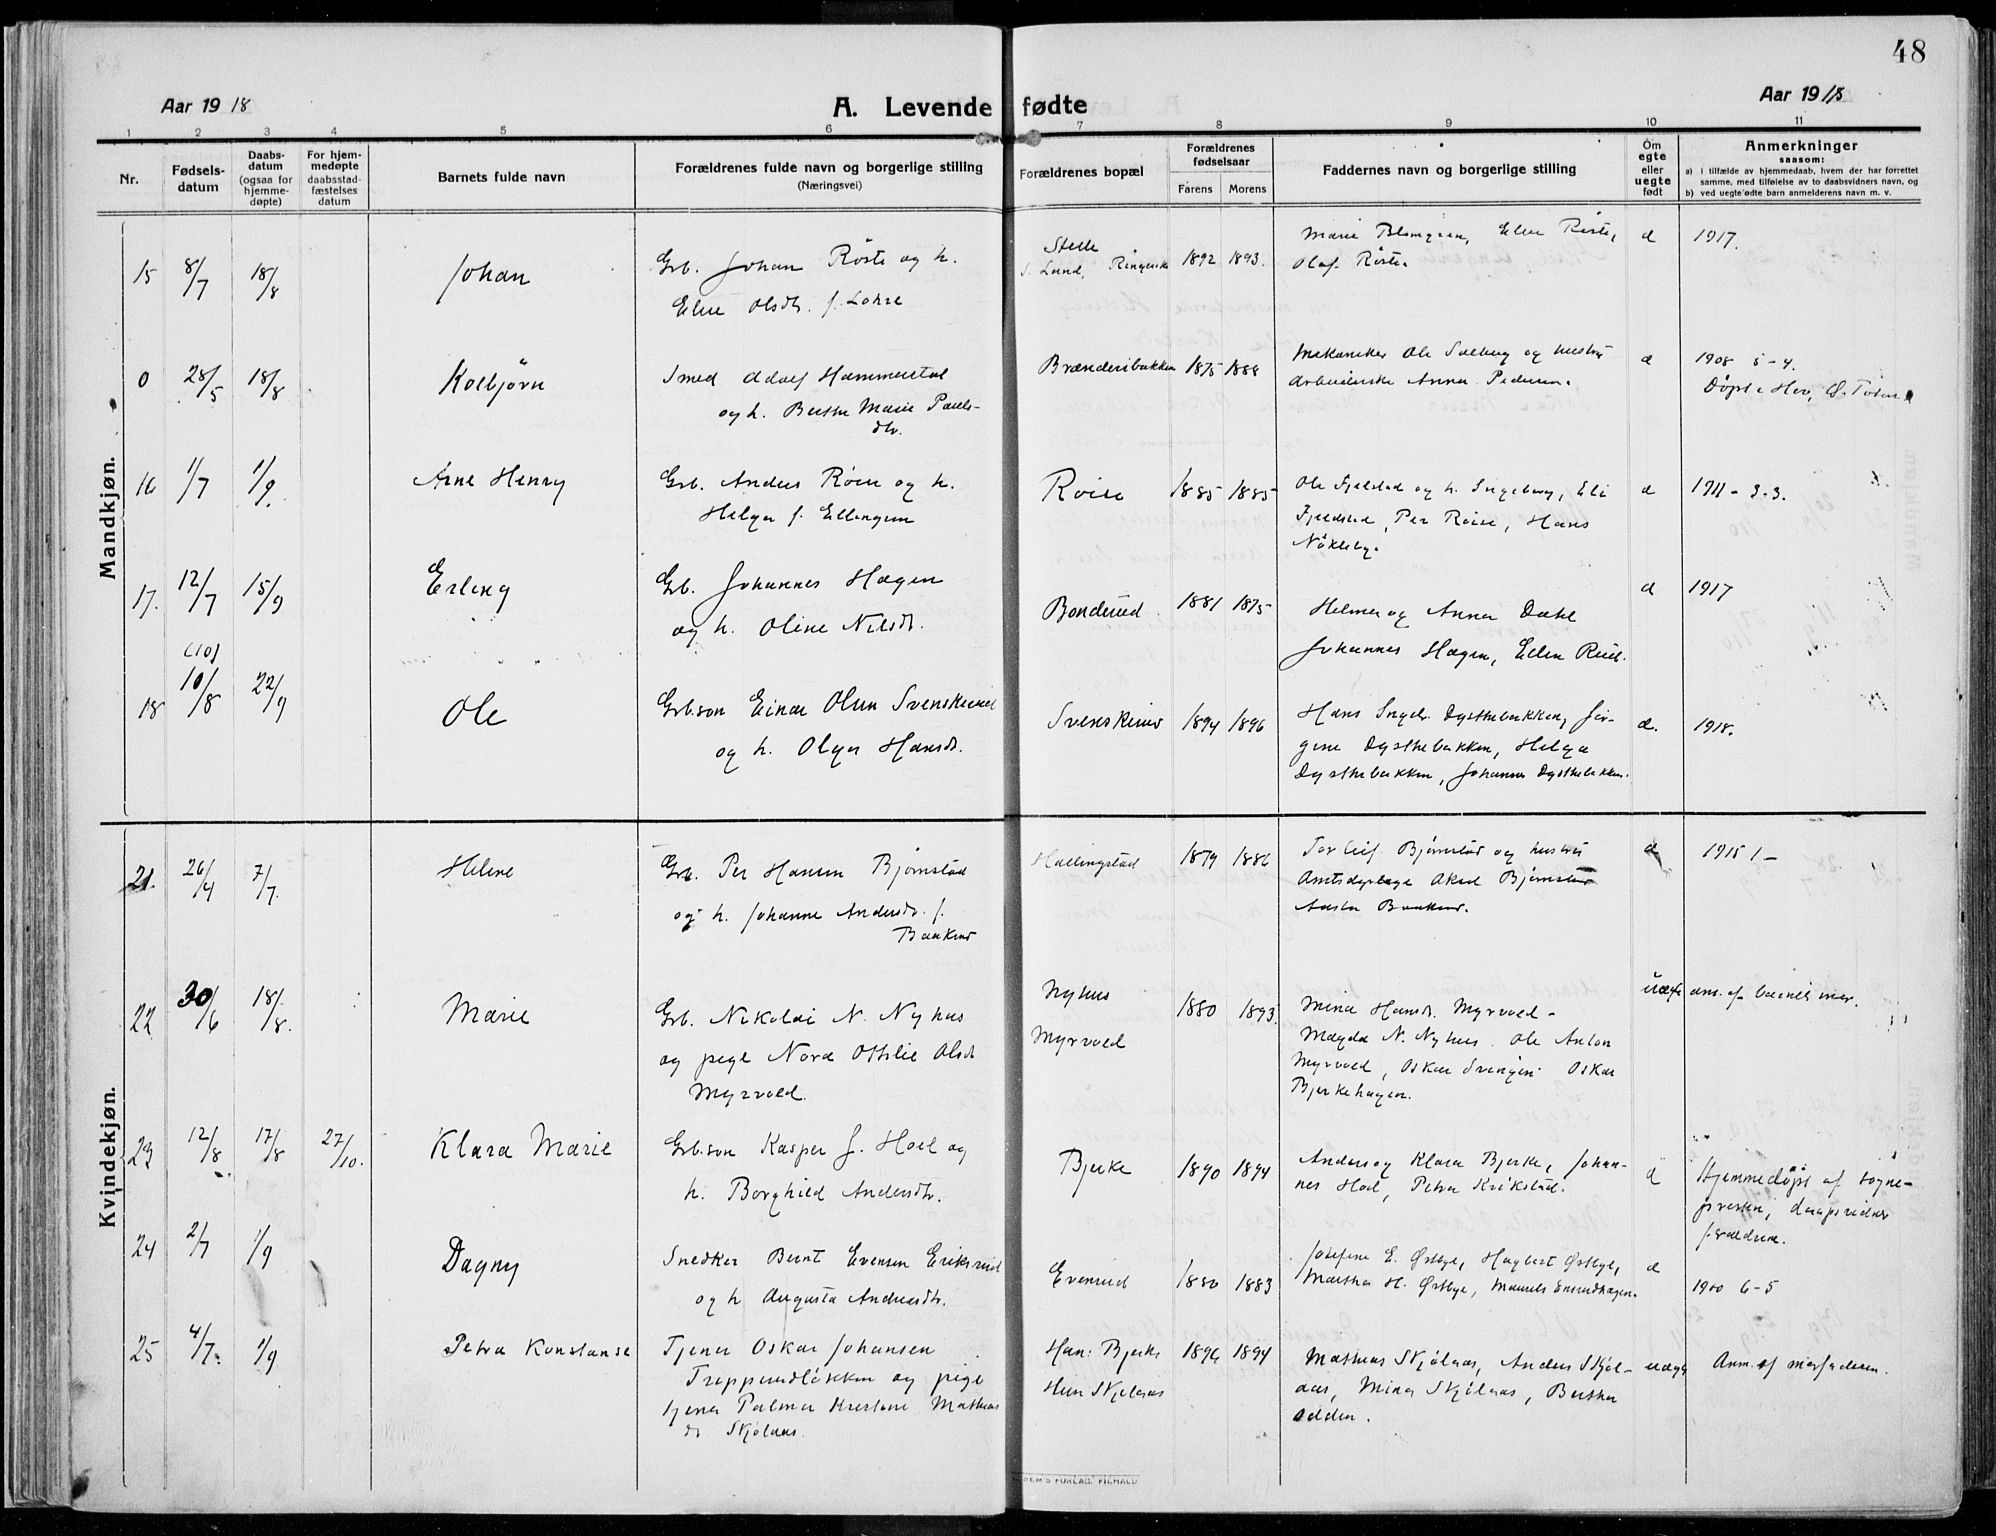 48
Aar 1918
A. Levende fødte
Aar 1918
1 2 3 4 5 6 7 8 9 10 11
Nr.
Fødsels-
datum
Daabs-
datum
(ogsaa for
hjemme-
døpte)
For hjem-
medøpte
daabsstad-
fæstelses
datum
Barnets fulde navn
Forældrenes fulde navn og borgerlige stilling
(Næringsvei)
Forældrenes bopæl
Forældrenes
fødselsaar
Farens Morens
Faddernes navn og borgerlige stilling
Om
egte
eller
uegte
født
Anmerkninger
saasom:
a) i tilfælde av hjemmedaab, hvem der har forrettet
samme, med tilføielse av to daabsvidners navn, og
b) ved uegte fødte barn anmelderens navn m. v.
Mandkjøn.
15 8/7 18/8 Johan
Grb. Johan Röste og h.
Eline Olsdt. f. Lohre
Lund, Ringerike 1892 1893.
Marie Blomgren, Eline Röste,
Olaf Röste.
1917.
0 28/5 18/8 Kolbjörn
Smed Adolf Hammerstad
og h. Berthe Marie Pauls-
dtr.
Brænderibakken 1875 1888
Mekaniker Ole Solberg og hustru
Arbeiderske Anna Pedersen.
1908 5-4.
Döpt i Hov,
16 1/7 1/9. Arne Henry
Grb. Anders Röise og h.
Helga f. Ellingsen
Roise 1885 1885
Ole Fjeldstad og h. Ingeborg, Eli
Fjeldstad, Per Röise, Hans
Nökleby.
1911-3-3.
17. 12/7 15/9 Erling
Grb. Johannes Hagen
og h. Oline Nilsdt.
Bonderud 1881 1875
Helmer og Anna Dahl
Johannes Hagen, Ellen
1917
(10)
18 10/8 22/9 Ole
Grb.søn Einar Olsen Svenskerud
og h. Olga Hansdt.
Svenskerud 1894 1896
Hans Ingv. Dysthebakken, Jör-
gine Dysthebakken, Helga
Dysthebakken, Johannes Dysthebakken.
1918.
Kvindekjøn.
21. 26/4 7/7. Helene
Grb. Per Hansen Bjørnstad
og h. Johanne Andersdt. f.
Baakind
Hallingstad 1879 1886
Torleif Bjørnstad og hustru
Aksel Bjørnstad
1915 1-
22 30/6 18/8. Marie
Grb. Nikolai N. Nyhus
og pige Nora Othilie Olsdt
Myrvold.
Nyhus
Myrvold
1880 1893.
Mina Hansdt. Myrvold-
Magda N. Nyhus. Ole Anton
Myrvold, Oskar Svingen Oskar
Bjerkehagen.
uægte
anm. af barnets mor.
23 12/8 17/8 27/10. Klara Marie
Grb.søn Kasper J. Hoel og
h. Borghild Andersdtr.
Bjerke 1890 1894
Anders og Klara Bjerke, Johan-
nes Hoel, Petra Krikstad.
Hjemmedöpt af sogne-
presten, daapsvidner
forældrene.
24 2/7 1/9 Dagny
Snedker Bernt Evensen Eriksrud
og h Augusta Andreasdtr.
Evenrud 1880 1883
Josefine E. Østbye, Hagbart Østbye,
Martha H. Østbye,
1900 6-5
25 4/7. 1/9 Petra Konstanse
Tjener Oskar Johansen
Trepperudløkken og pige
tjener Palma Kristine Mathias
dt Skjølaas.
Han: Bjerke
Hun Skjelaas
1896 1894
Mathias Skjölaas, Anders Skjöl-
aas, Mina Skjölaas, Berthe
Odden.
uægte
Anm. af morfaderen.